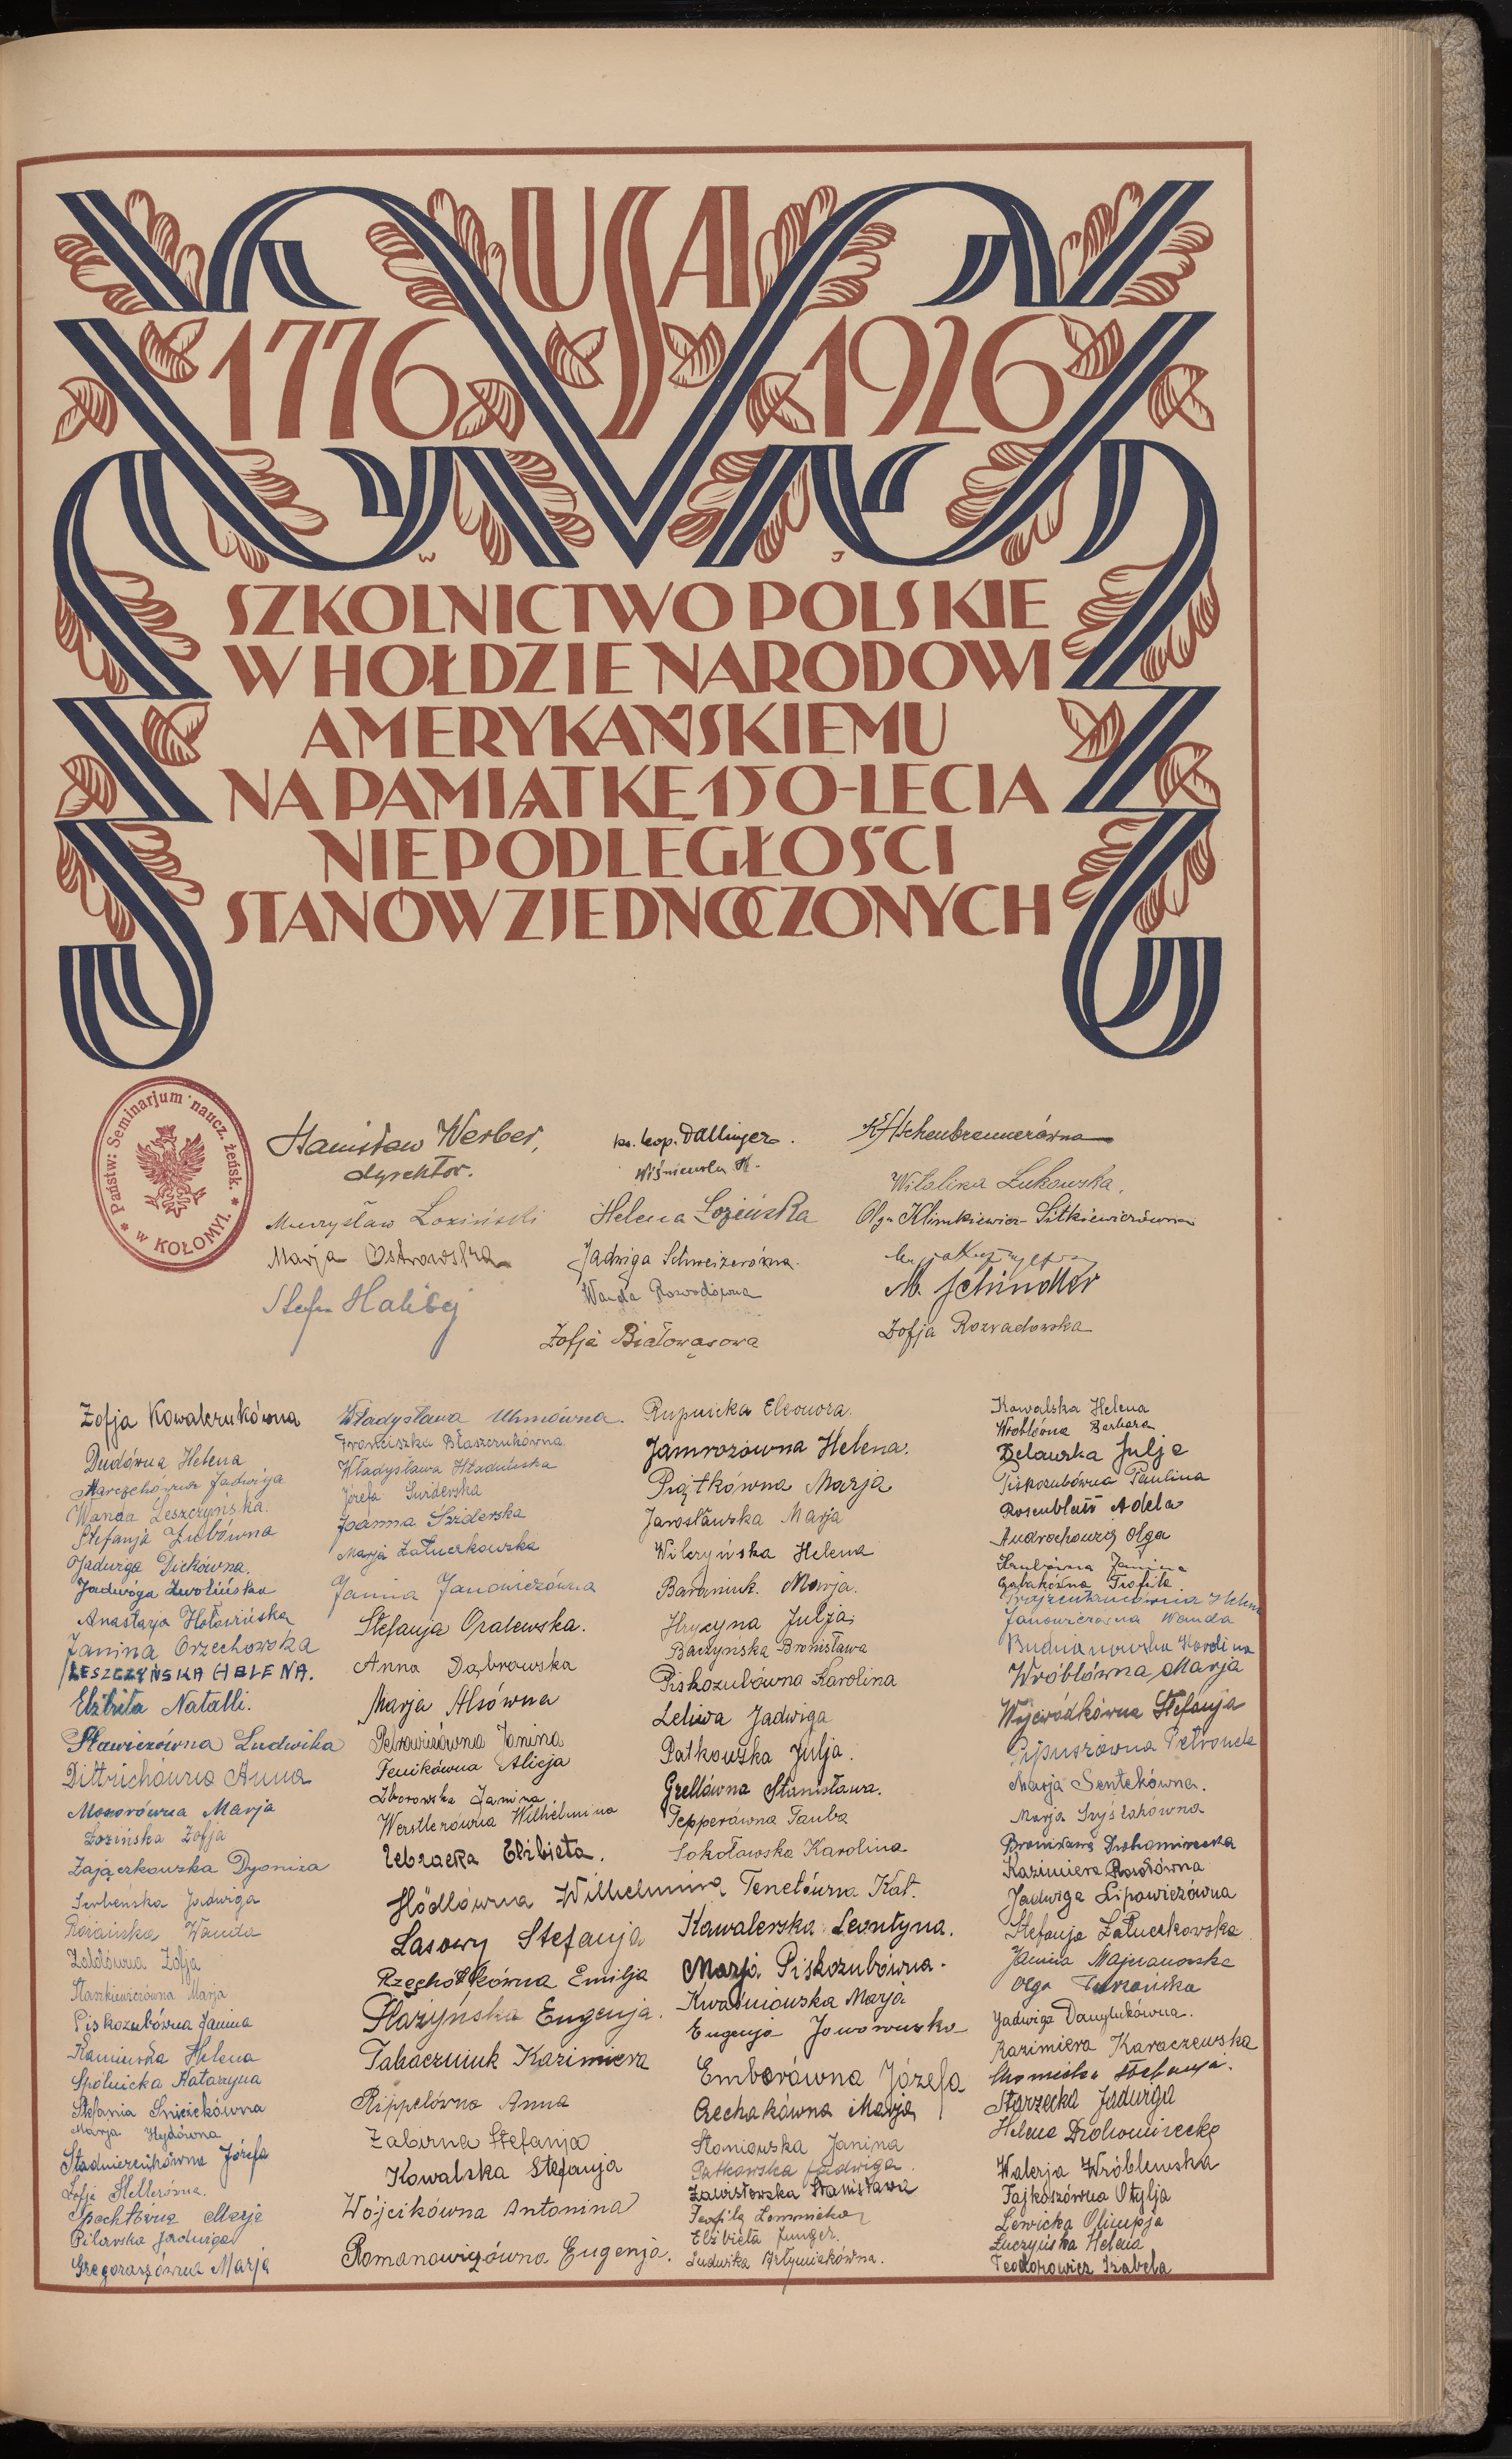 USA
1776 1926
W J
SZKOLNICTWO POLSKIE
W HOŁDZIE NARODOWI
AMERYKAŃSKIEMU
NA PAMIĄTKĘ 150-LECIA
NIEPODLEGŁOŚCI
STANÓW ZJEDNOCZONYCH
Państw: Seminarjum naucz. żeńsk.
w KOŁOMYI.
Stanisław Werber,
dyrektor.
Mieczysław Łoziński
Marja Ostrowska
Stefan Halibej
ks. Leop. Dallinger.
Wiśniewska H.
Helena Łozińska
Jadwiga Schweizerówna.
Wanda Rozwodówna
Zofja Białowąsowa
Scheubrennerówna
Witalisa Łukowska.
Olga Klimkiewicz-Sitkiewiczówna
M. Schindler
Zofja Rozwadowska
Zofja Kowalczukówna
Dudówna Helena
Marczchówna Jadwiga
Wanda Leszczyńska.
Stefanja Zubówna
Jadwiga Dickówna.
Jadwiga Zwolińska
Anastazja Hołowińska
Janina Orzechowska
LESZCZYŃSKA HELENA.
Elżbieta Natalli.
Sławiczówna Ludwika
Dittrichówna Anna
Mazorówna Marja
Łozińska Zofja
Zajączkowska Dyoniza
Serbeńska Jadwiga
Rozańska Wanda
Załdówna Zofja
Staszkiewiczówna Marja
Piskozubówna Janina
Kamińska Helena
Spólnicka Katarzyna
Stefania Śnieżkówna
Marja Hydówna
Stadniczeńkówna Józefa
Zofja Hellerówna.
Spechtówna Marja
Pilawska Jadwiga
Gregoraszówna Marja
Władysława Uhmówna.
Franciszka Błaszczukówna.
Władysława Hładuńska
Józefa Surderska
Joanna Sziderska
Marja Załuczkowska
Janina Janowiczówna
Stefanja Opalewska.
Anna Dąbrowska
Marja Alsówna
Petrowiczówna Janina
Fenikówna Alicja
Zborowska Janina
Werstlerówna Wilhelmina
Żebracka Elżbieta.
Hödlówna Wilhelmina
Lasowy Stefanja
Rzechółkówna Emilja
Płażyńska Eugenja.
Tabaczniuk Kazimiera
Rippelówna Anna
Zaburna Stefanja
Kowalska Stefanja
Wójcikówna Antonina
Romanowiczówna Eugenja.
Rupnicka Eleonora.
Jamrozówna Helena.
Piątkówna Marja
Jarosławska Marja
Wilczyńska Helena
Baraniuk. Marja.
Hrycyna Julja
Baczyńska Bronisława
Piskozubówna Karolina
Leliwa Jadwiga
Patkowska Julja.
Grellówna Stanisława.
Pepperówna Tauba
Sokołowska Karolina
Tenetówna Kat.
Kawalerska Leontyna.
Marja Piskozubówna.
Kwaśniowska Marja
Eugenja Jaworowska
Emborówna Józefa
Czechakówna Marja
Słoniowska Janina
Patkowska Jadwiga.
Zawistowska Stanisława
Teofila Łomnicka
Elżbieta Junger.
Ludwika Artymiakówna.
Kowalska Helena
Wróblówna Barbara
Delawska Julja
Piskozubówna Paulina
Rosenblatt Adela
Andrachowicz Olga
Hrubówna Janina
Gabakówna Teofila.
Helena
Janowiczówna Wanda
Budnianowska Karolina
Wróblówna Marja
Wojewódkówna Stefanja
Pipuszówna Petronela
Marja Sentekówna.
Marja Szyślakówna
Bronisława Drohomirecka
Kazimiera Rosołówna
Jadwiga Lipowiczówna
Stefanja Załuczkowska
Janina Majranowska
Olga Turzańska
Jadwiga Danylukówna.
Kazimiera Karaczewska
Chomicka Stefanja.
Starzecka Jadwiga
Helena Drohomirecka
Walerja Wróblewska
Fajkoszówna Otylja
Lewicka Olimpja
Łuczyńska Helena
Teodorowicz Izabela